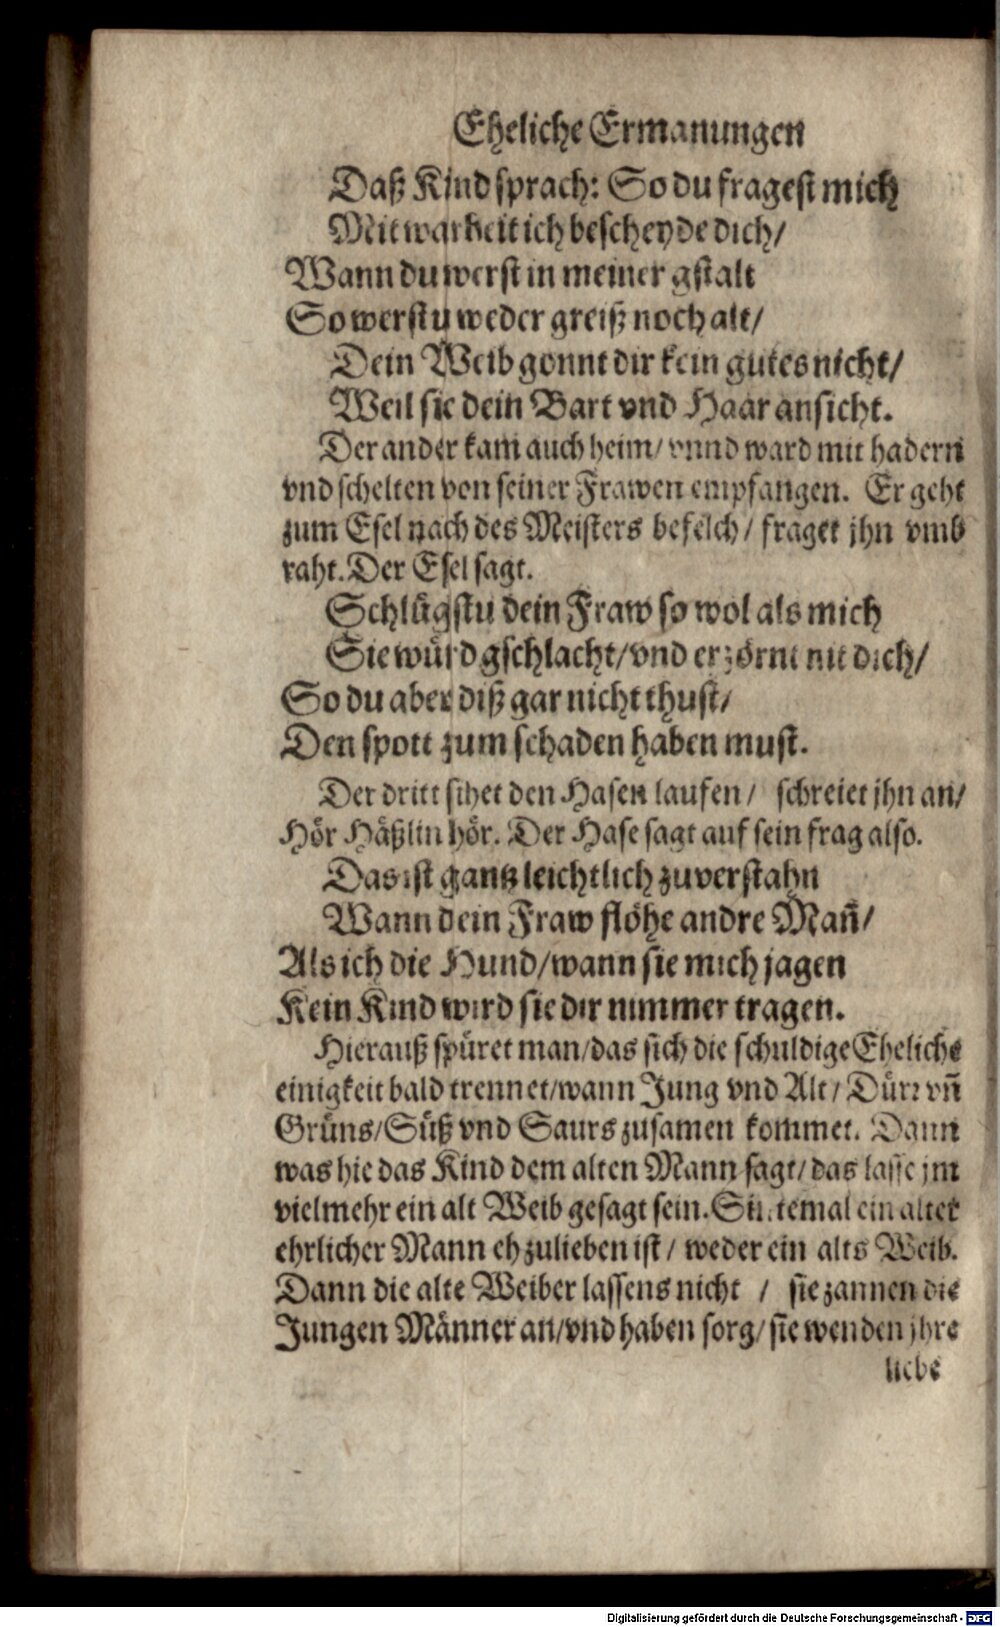 Eheliche Ermanungen
Daß Kind sprach: So du fragest mich
Mit warheit ich bescheyde dich/
Wann du werst in meiner gstalt
So werstu weder greiß noch alt/
Dein Weib gonnt dir kein gutes nicht/
Weil sie dein Bart vnd Haar ansicht.
Der ander kam auch heim/ vnnd ward mit hadern
vnd schelten von seiner Frawen empfangen. Er geht
zum Esel nach des Meisters befelch/ fraget jhn vmb
raht. Der Esel sagt.
Schlügstu dein Fraw so wol als mich
Sie würd gschlacht/ vnd erzörnt nit dich/
So du aber diß gar nicht thust/
Den spott zum schaden haben must.
Der dritt sihet den Hasen laufen/ schreiet jhn an/
Hör Häßlin hör. Der Hase sagt auf sein frag also.
Das ist gantz leichtlich zuverstahn
Wann dein Fraw flöhe andre Mañ/
Als ich die Hund/ wann sie mich jagen
Kein Kind wird sie dir nimmer tragen.
Hierauß spüret man/ das sich die schuldige Eheliche
einigkeit bald trennet/ wann Jung vnd Alt/ Dürr vñ
Grüns/ Süß vnd Saurs zusamen kommet. Dann
was hie das Kind dem alten Mann sagt/ das lasse jm
vielmehr ein alt Weib gesagt sein. Sintemal ein alter
ehrlicher Mann eh zulieben ist/ weder ein alts Weib.
Dann die alte Weiber lassens nicht / sie zannen die
Jungen Männer an/ vnd haben sorg/ sie wenden jhre
liebe
Digitalisierung gefördert durch die Deutsche Forschungsgemeinschaft - DFG